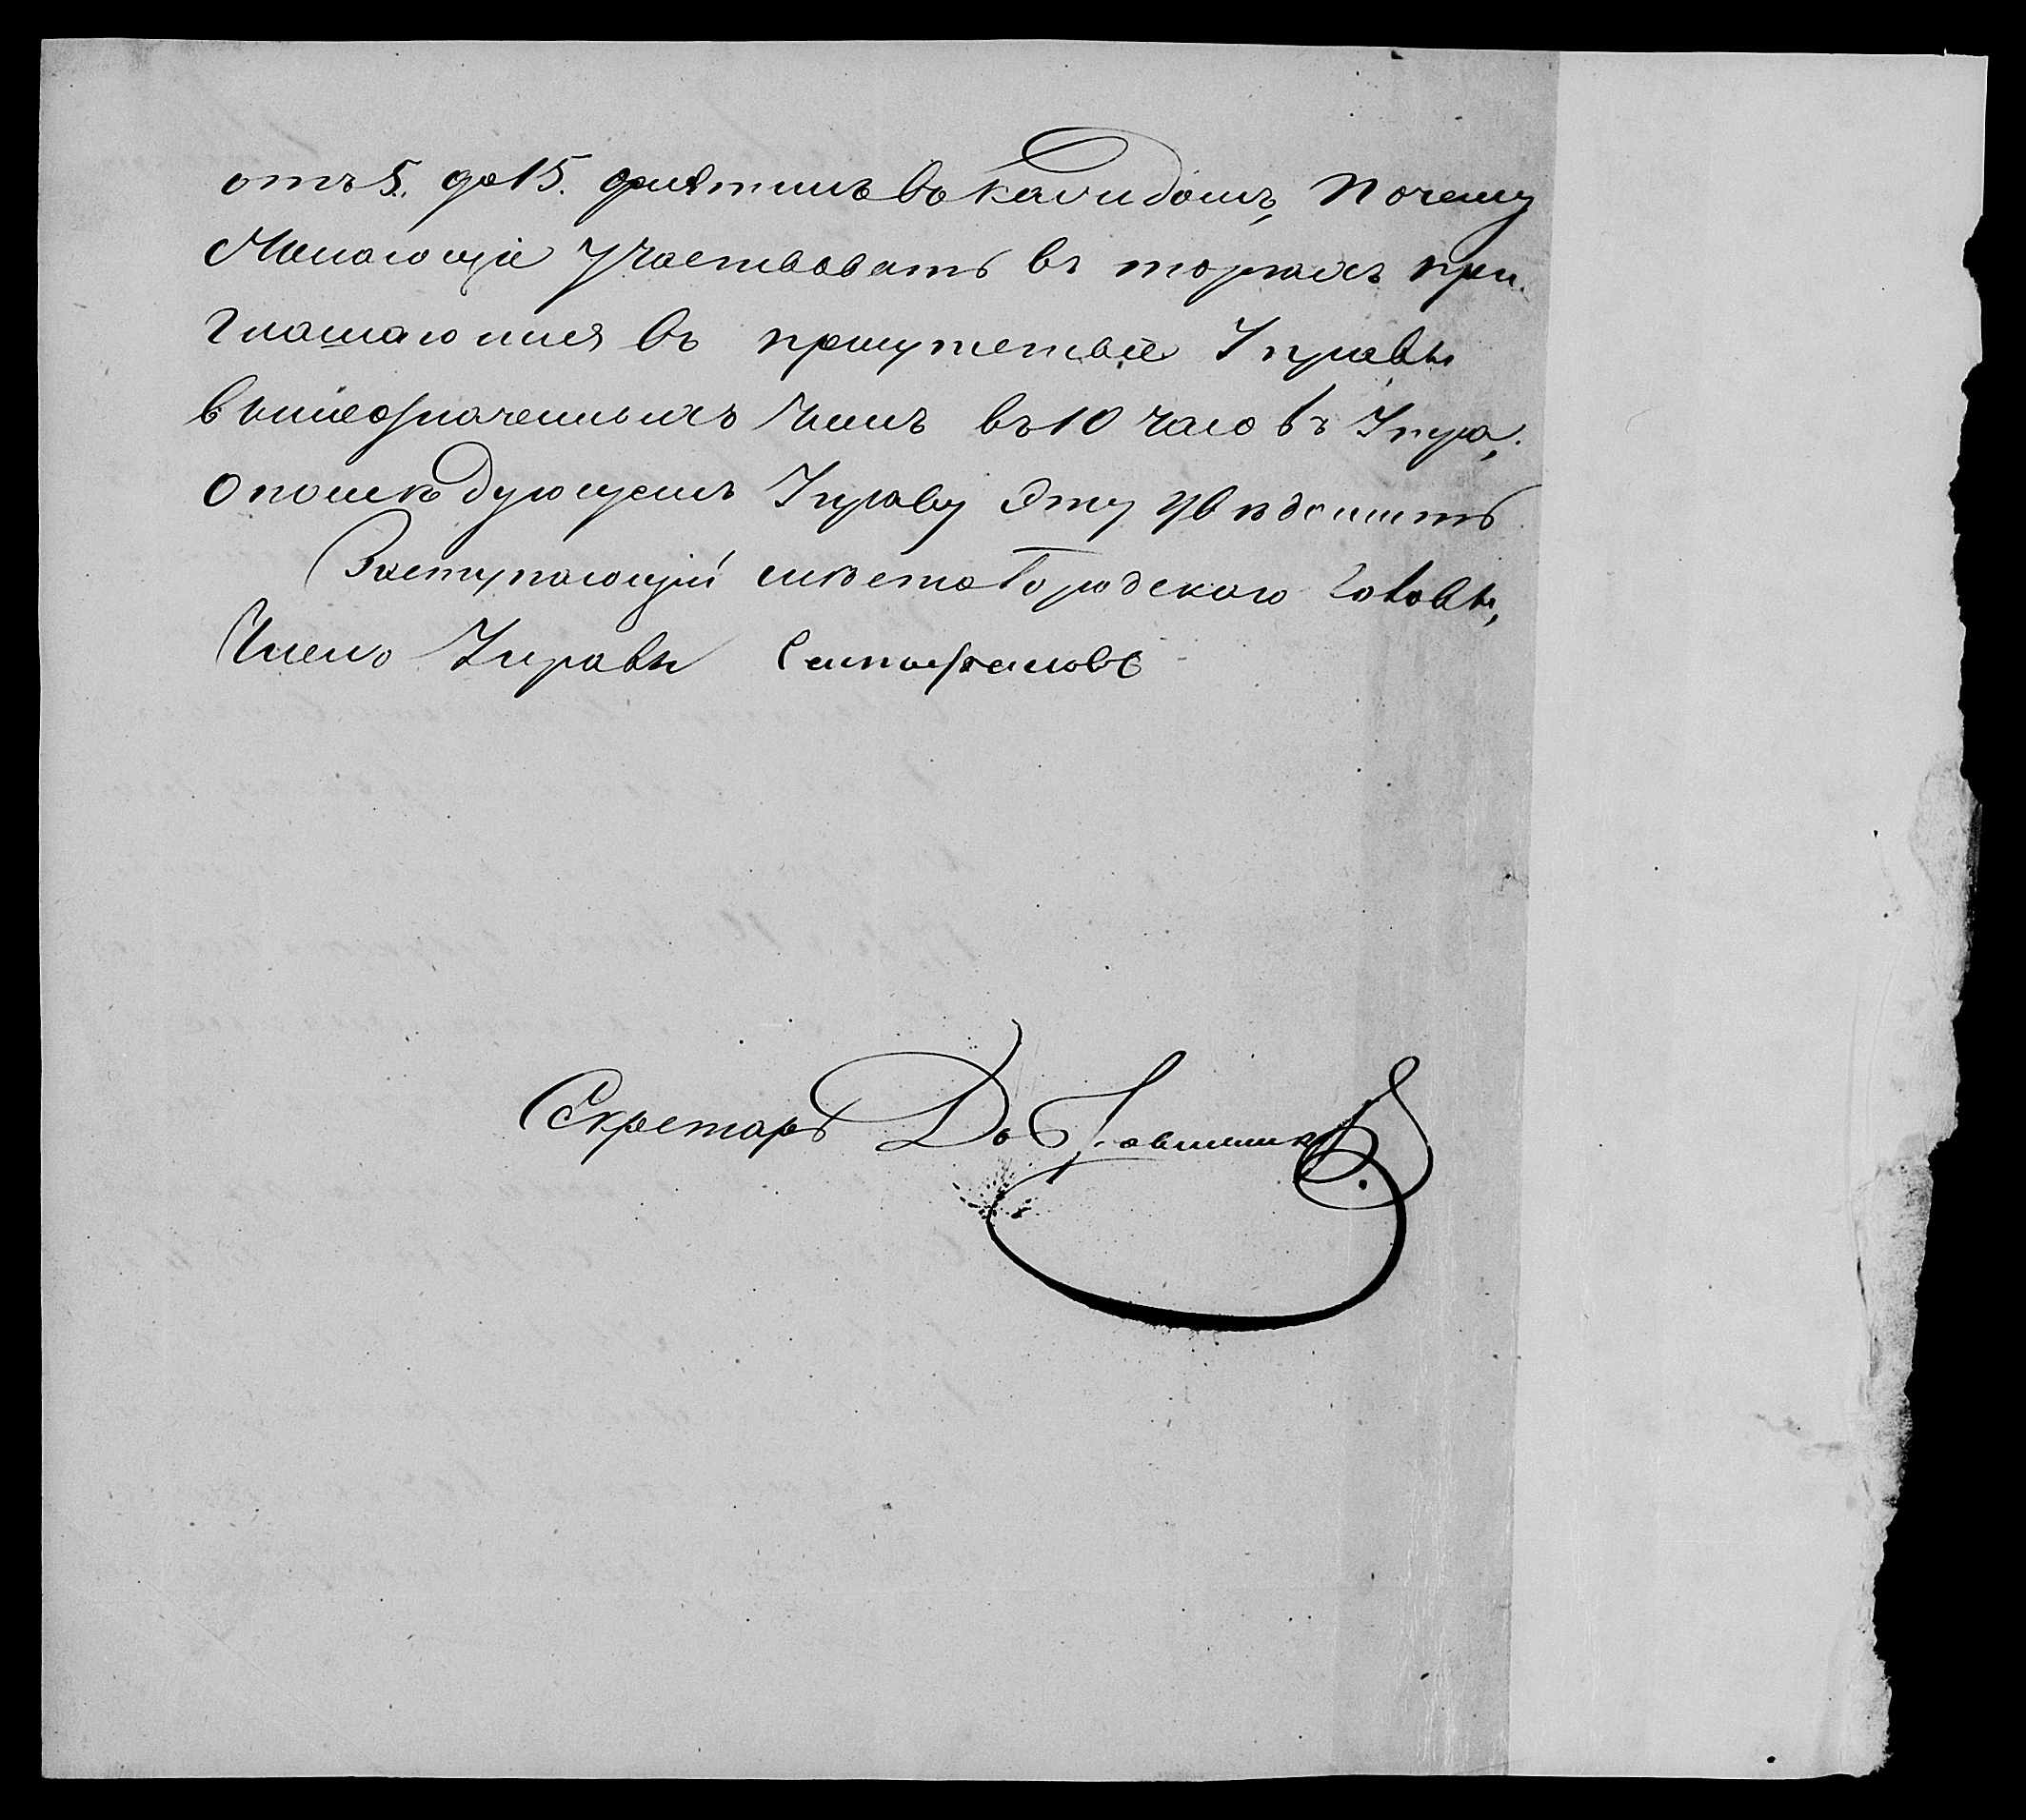 отъ 5. до 15. десятинъ въ каждомъ, Почему
Желающіе Участвовать въ торгахъ при-
глашаются въ присутствіе Управы
вышеозначенныхъ чиселъ въ 10 часовъ Утра,
О послѣдующемъ Управу эту увѣдомить
Заступающій мѣсто Городскаго Головы,
Членъ Управы
Секретарь